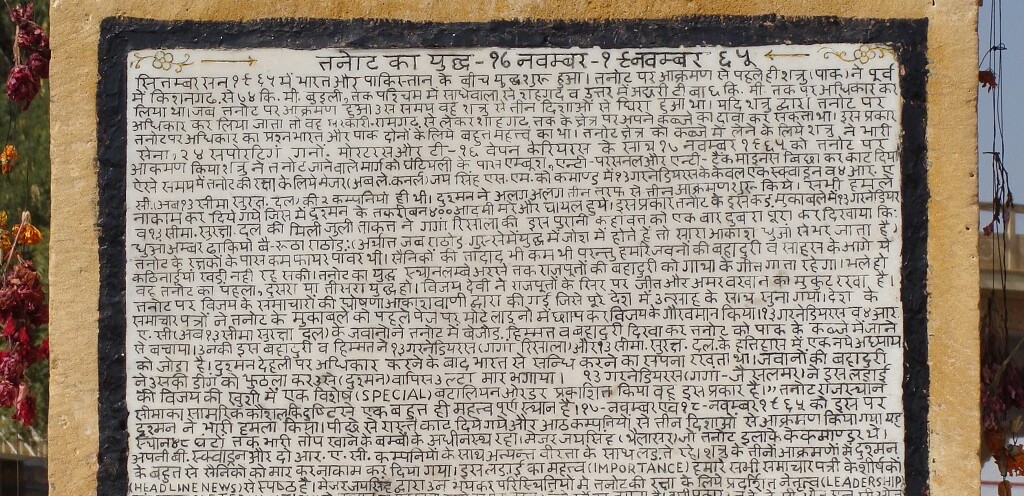 तनोट का युद्ध - १६ नवम्बर - १९ नवम्बर ६५
सितम्बर सन १९६५ में भारत और पाकिस्तान के बीच युद्ध शुरू हुआ। तनोट पर आक्रमण से पहले ही शत्रु (पाक) ने पूर्व
में किशनगढ़ से ७४ कि. मी. बुइली, तक पश्चिम में साधेवाला से शाहगढ़ व उत्तर में अछरी टीबा ६ कि. मी. तक पर अधिकार कर
लिया था। जब तनोट पर आक्रमण हुआ उस समय वह शत्रु से तीन दिशाओं से घिरा हुआ था। यदि शत्रु द्वारा तनोट पर
अधिकार कर लिया जाता तो वह रामगढ़ से लेकर शाहगढ़ तक के क्षेत्र पर अपने कब्जे का दावा कर सकता था। इस प्रकार
तनोट पर अधिकार का प्रश्न भारत और पाक दोनों के लिये बहुत महत्त्व का था। तनोट क्षेत्र को कब्जे में लेने के लिये शत्रु ने भारी
सेना, २४ सपोरटिंग गनों, मोरटारस और टी-१६ वेपन केरियरस के साथ १७ नवम्बर १९६५ को तनोट पर
आक्रमण किया शत्रु ने तनोट जाने वाले मार्ग को घंटियाली के पास एम्बुश, एन्टी-परसनल और एन्टी-टैंक माइनस बिछा कर काट दिया
ऐसे समय में तनोट की रक्षा के लिये मेजर (अब ले. कनल) जय सिंह एस. एम. की कमाण्ड में १३ गरनेडियरस के केवल एक स्क्वाड्रन व ४ आर. ए.
सी. (अब १३ सीमा सुरक्षा दल) की २ कम्पनियां ही थी। दुश्मन ने अलग अलग तीन तरफ से तीन आक्रमण शुरू किये। सभी हमले
नाकाम कर दिये गये जिस में दुश्मन के तकरीबन ४०० आदमी मरे और घायल हुये। इस प्रकार तनोट के इस निकट मुकाबले में १३ गरनेडियरस
व १३ सीमा सुरक्षा दल की मिली जुली ताकत ने गंगा रिसाला की इस पुरानी कहावत को एक बार दुबारा पूरा कर दिखाया कि:
धुआ अम्बर ढाकियो बै-रूठा राठोड़: (अर्थात जब राठोड़ गुस्से में युद्ध में जोश में होते है तो सारा आकाश धुओं से भर जाता है)
तनोट के रक्षकों के पास कम फायर पावर थी। सैनिकों की तादाद भी कम थी परन्तु हमारे जवानों की बहादुरी व साहस के आगे ये
कठिनाईयां खड़ी नहीं रह सकी। तनोट का युद्ध स्थान लम्बे अरसे तक राजपूतों की बहादुरी की गाथा के गीत गाता रहेगा। भले ही
वह तनोट का पहला, दूसरा या तीसरा युद्ध हो। विजय देवी ने राजपूतों के सिर पर जीत और अमर बखान का मुकुट रखा है।
तनोट पर विजय के समाचारों की घोषणा आकाशवाणी द्वारा की गई जिसे पूरे देश में उत्साह के साथ सुना गया। देश के
समाचार पत्रों ने तनोट के मुकाबले को पहले पेज पर मोटे लाइनों में छाप कर विजय के गौरवमान किया। १३ गरनेडियरस व ४ आर.
ए. सी. (अब १३ सीमा सुरक्षा दल) के जवानों ने तनोट में बेजोड़ हिम्मत व बहादुरी दिखाकर तनोट को पाक के कब्जे में जाने
से बचाया। उनकी इस बहादुरी व हिम्मत ने १३ गरनेडियरस (गंगा रिसाला) और १३ सीमा. सुरक्षा. दल के इतिहास में एक नये अध्याय
को जोड़ा है। दुश्मन देहली पर अधिकार करने के बाद भारत से सन्धि करने का सपना रखता था। जवानों की बहादुरी
ने उसकी डींग को झुठला कर उस (दुश्मन) वापिस उल्टा मार भगाया। १३ गरनेडियरस (गंगा-जैसलमेर) ने इस लड़ाई
की विजय की खुशी में एक विशेष (SPECIAL) बटालियन आरडर प्रकाशित किया वह इस प्रकार है। "तनोट राजस्थान
सीमा का सामरिक कौशल के दृष्टि से एक बहुत ही महत्त्व पूर्ण स्थान है। १७-नवम्बर एवं १८-नवम्बर १९६५ को इस पर
दुश्मन ने भारी हमला किया। पीछे से रास्ते काट दिये गये और आठ कम्पनियों से तीन दिशाओं से आक्रमण किया गया यह
स्थान ४८ घंटों तक भारी तोप खाने के बम्बों के अधीनस्थ रहा। मेजर जयसिंह (थेलासर) जो तनोट इलाके के कमाण्डर थे।
अपनी बी. स्क्वाड्रन और दो आर. ए. सी. कम्पनियों के साथ अत्यन्त वीरता के साथ लड़ते रहे। शत्रु के तीनों आक्रमणों में दुश्मन
के बहुत से सैनिकों को मार कर नाकाम कर दिया गया। इस लड़ाई का महत्त्व (IMPORTANCE) हमारे सभी समाचार पत्रों के शीर्षकों
(HEADLINE NEWS) से स्पष्ठ है। मेजर जयसिंह द्वारा उन भयंकर परिस्थितियों में तनोट की रक्षा के लिये प्रदर्शित नेतृत्व (LEADERSHIP)